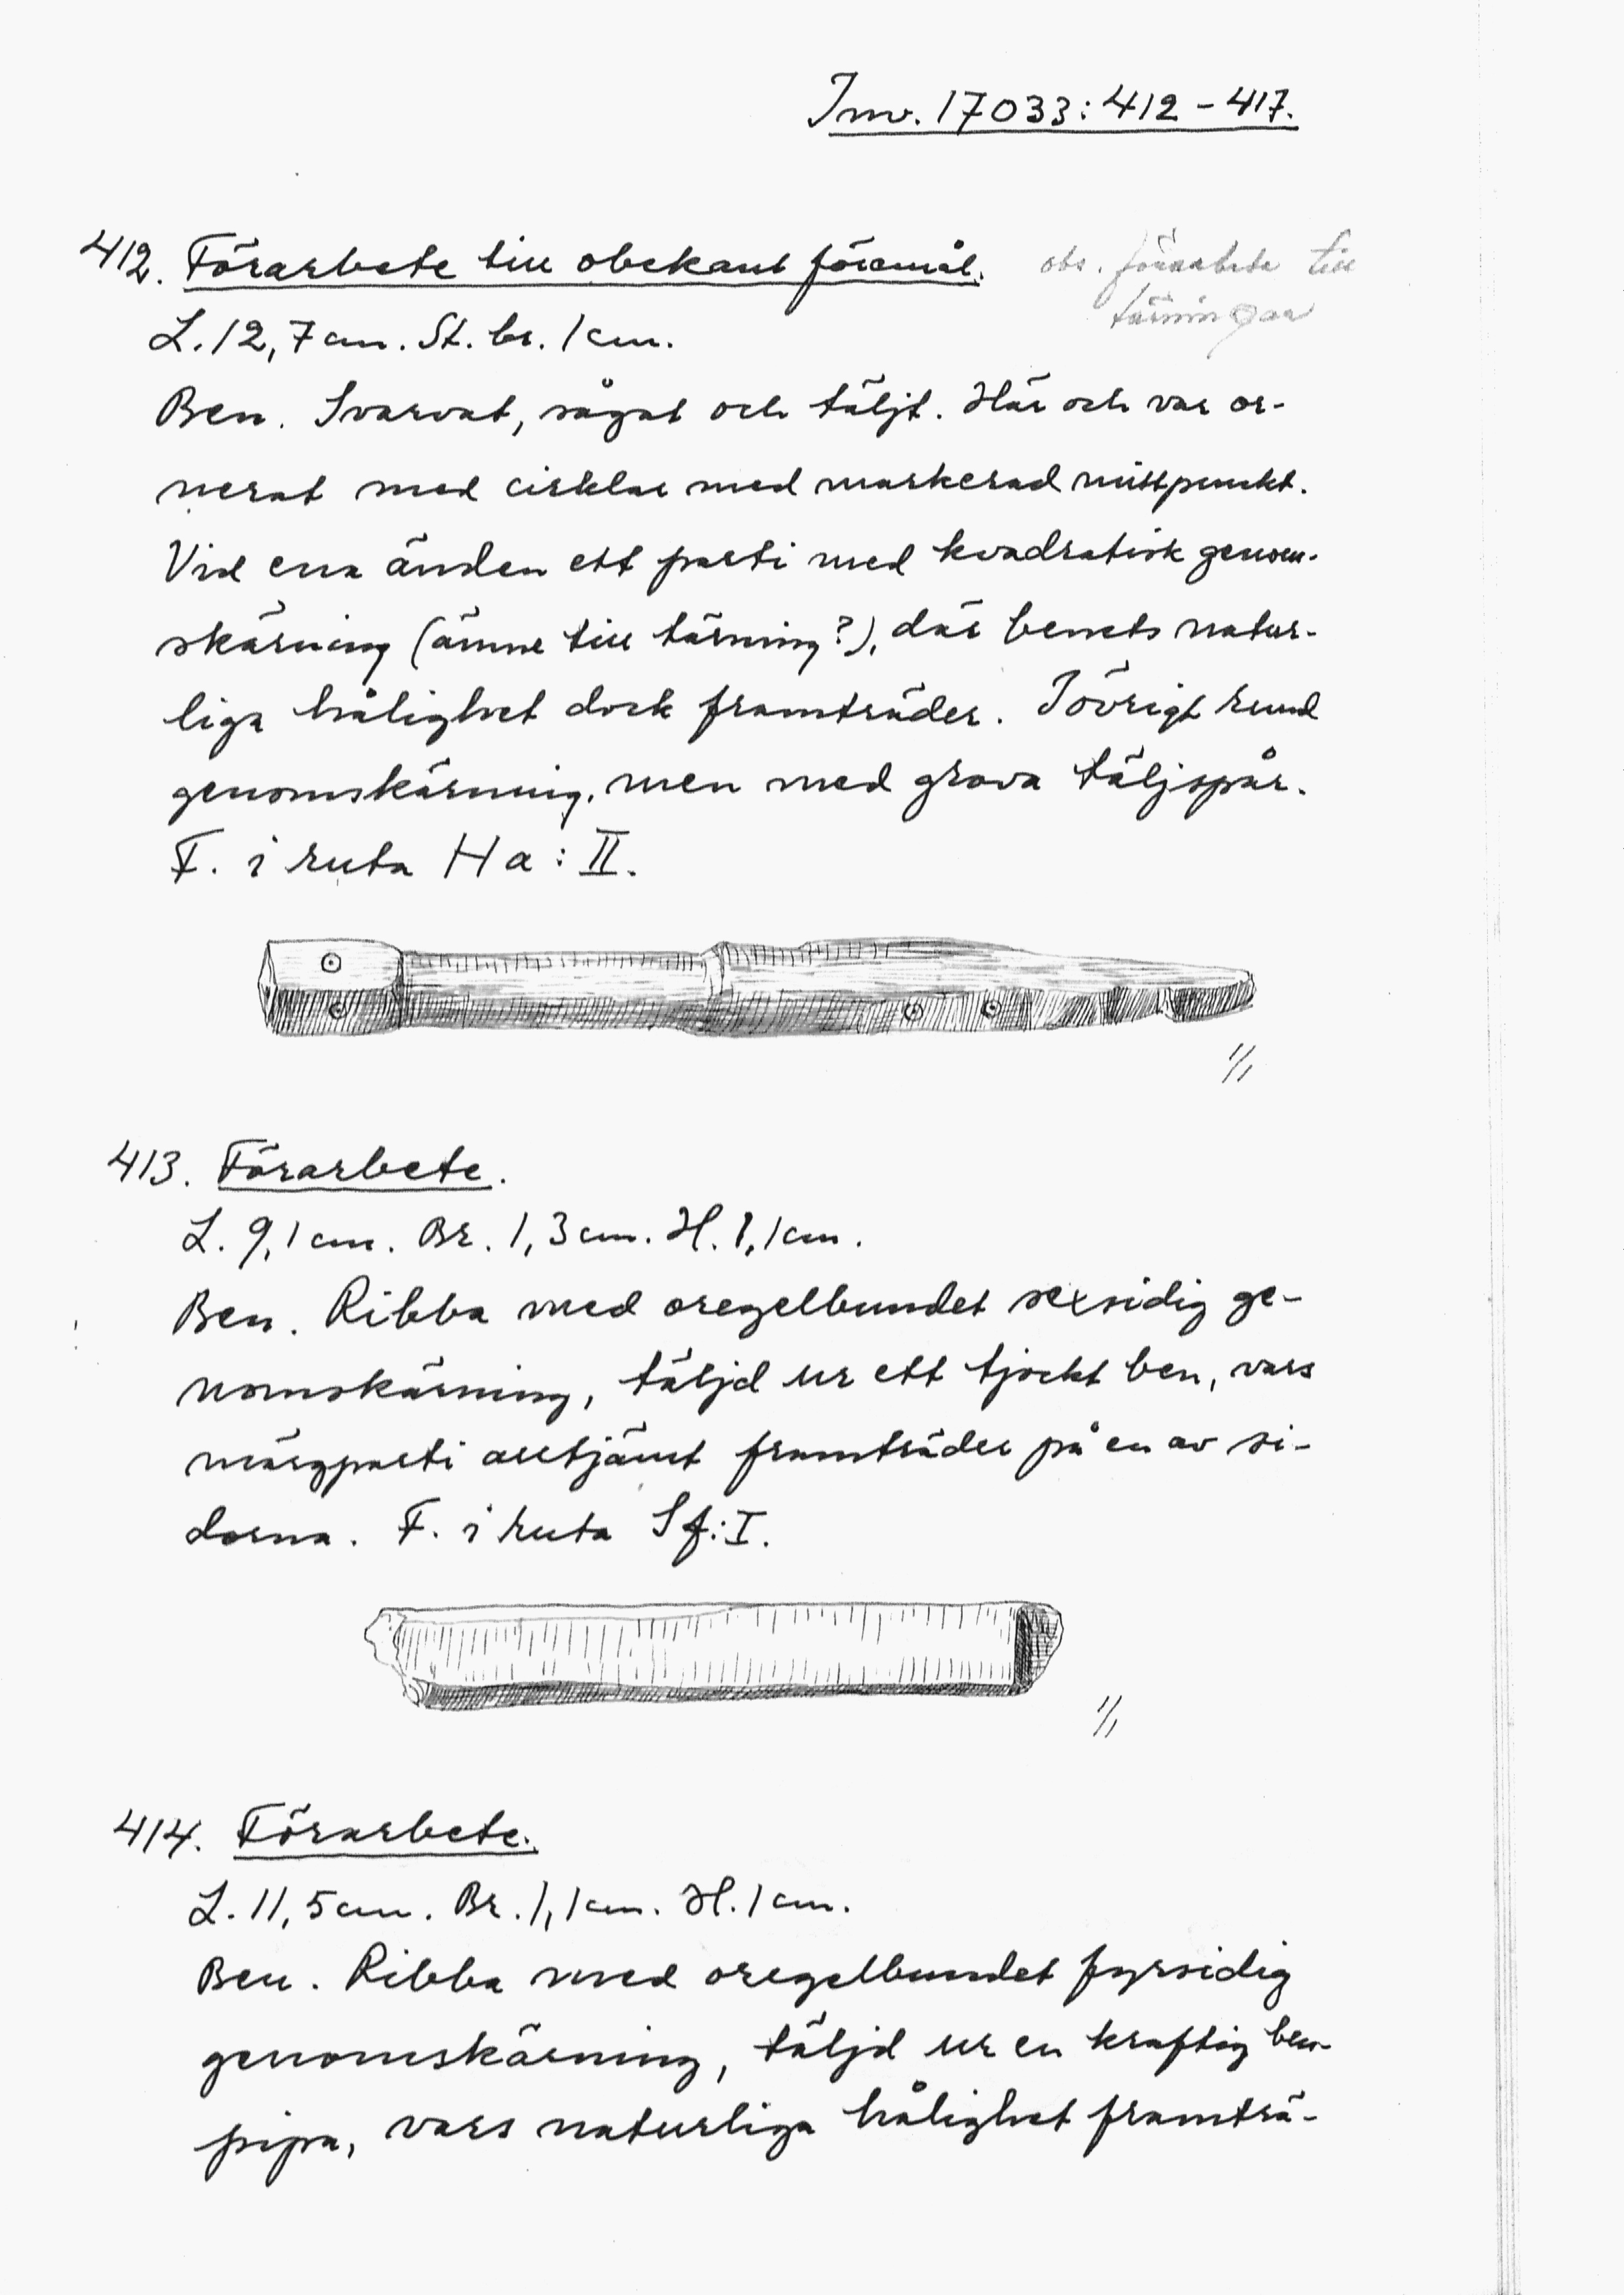 Inv. 17033:412-417.
412. Förarbete till obekant föremål.
obs. förarbete till
tärningar
L. 12,7 cm. St. br. 1 cm.
Ben. Svarvat, sågat och täljt. Här och var or-
nerat med cirklar med markerad mittpunkt.
Vid ena änden ett parti med kvadratisk genom-
skärning (ämne till tärning?), där benets natur-
liga hålighet dock framträder. I övrigt rund
genomskärning, men med grova täljspår.
F. i ruta Ha: II.
1/1
413. Förarbete.
L. 9,1 cm. Br. 1,3 cm. H. 1,1 cm.
Ben. Ribba med oregelbundet sexsidig ge-
nomskärning, täljd ur ett tjockt ben, vars
märgparti alltjämt framträder på en av si-
dorna. F. i ruta Sf: I.
1/1
414. Förarbete.
L. 11,5 cm. Br. 1,1 cm. H. 1 cm.
Ben. Ribba med oregelbundet fyrsidig
genomskärning, täljd ur en kraftig ben-
pipa, vars naturliga hålighet framträ-